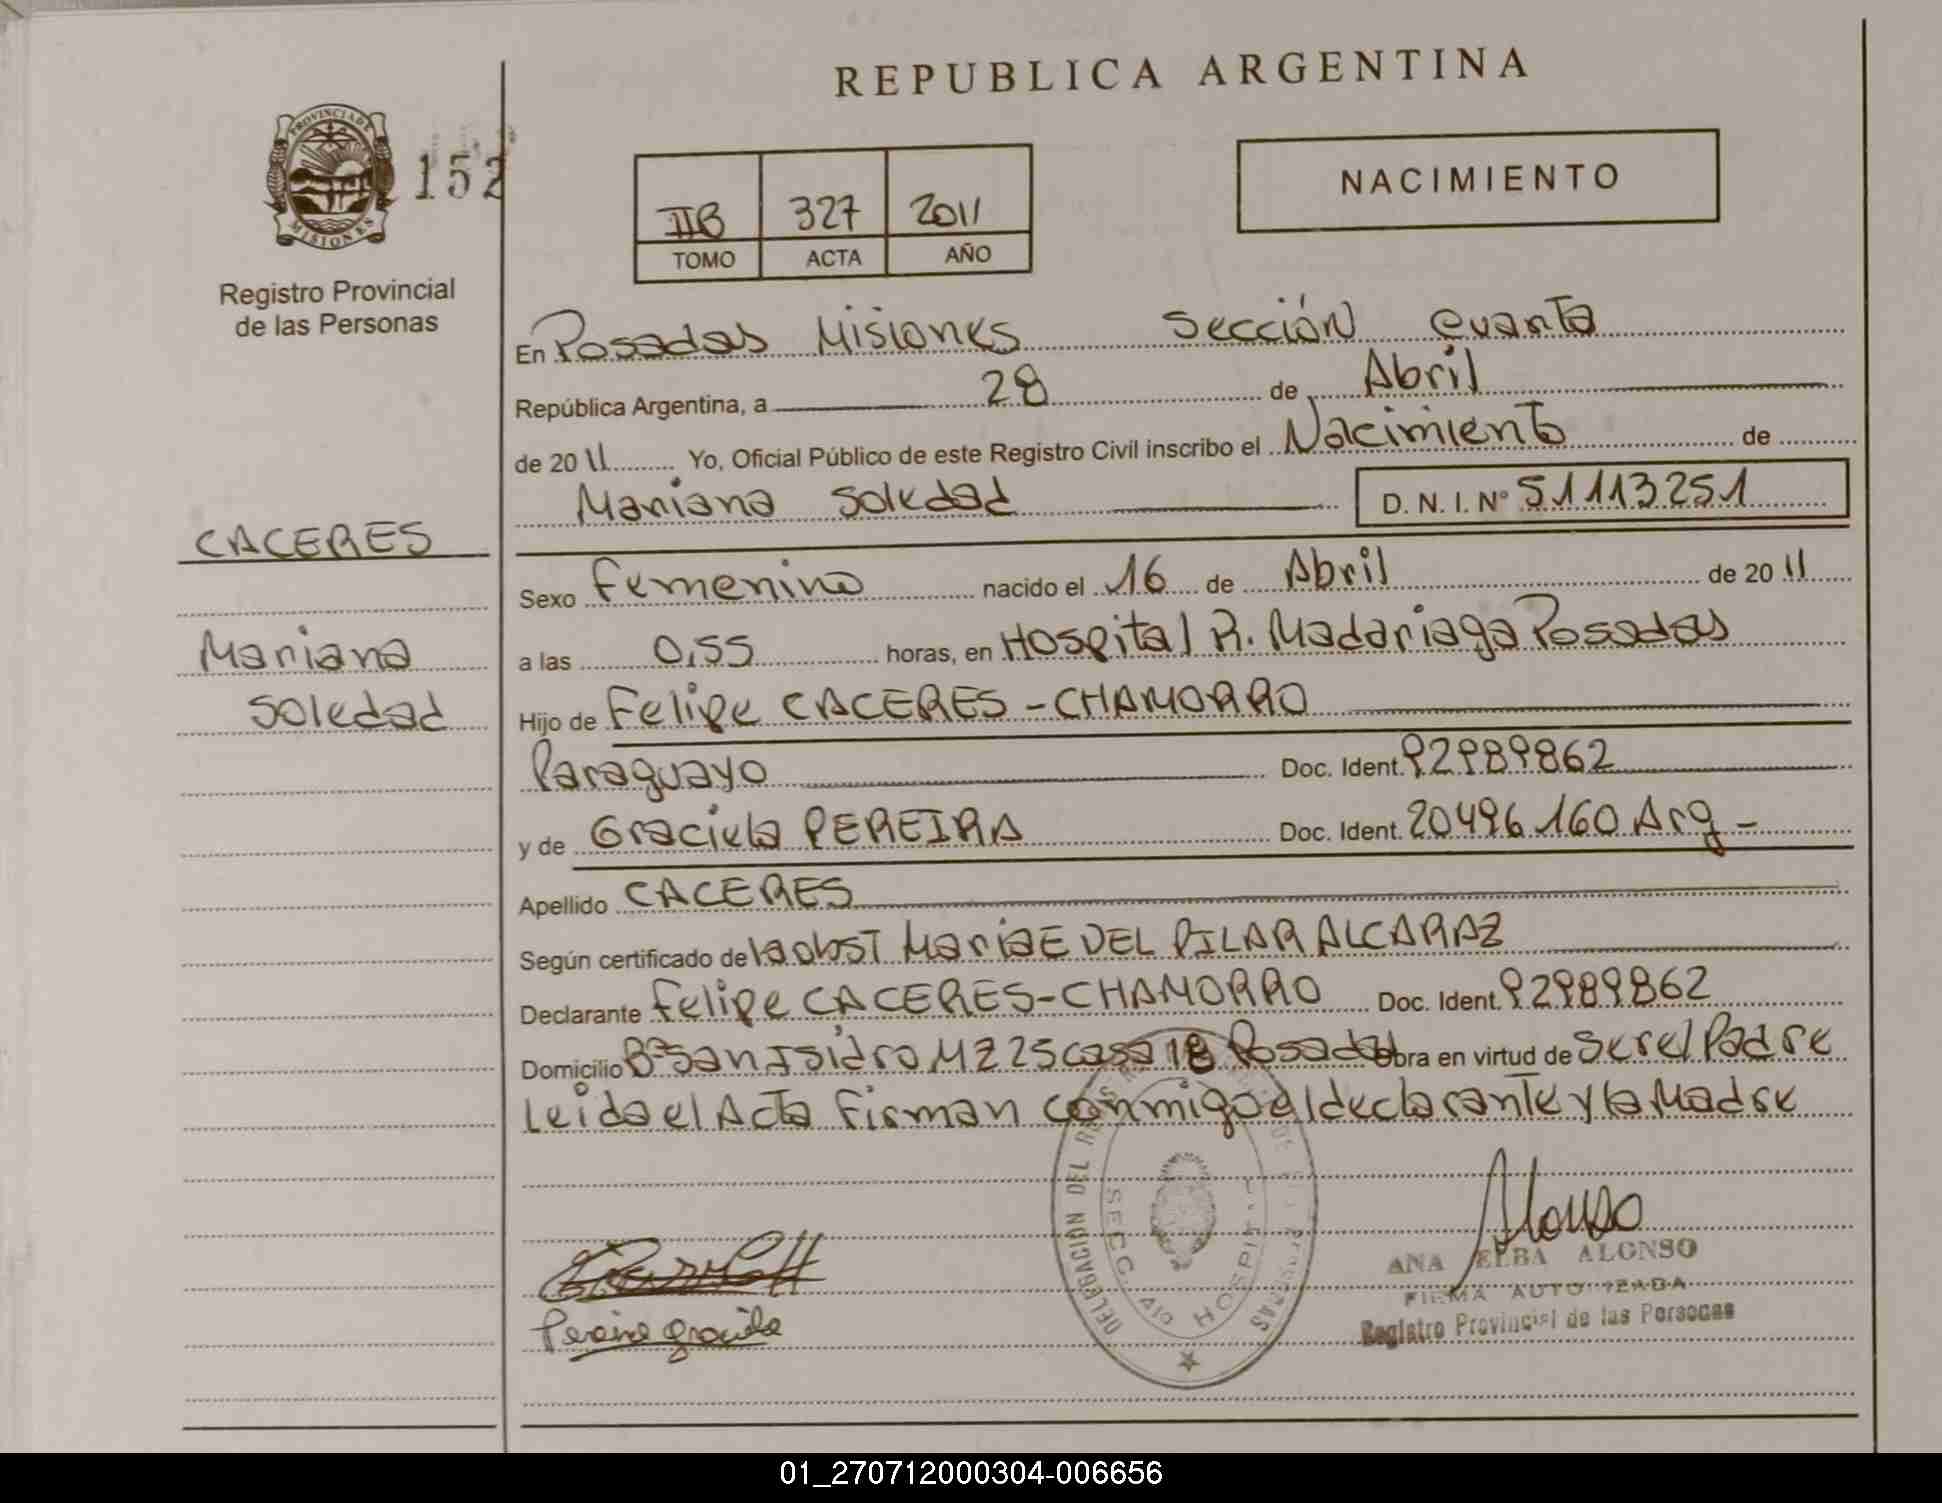 REPUBLICA ARGENTINA
PROVINCIA DE MISIONES
152
Registro Provincial
de las Personas
IIB 327 2011
TOMO ACTA AÑO
NACIMIENTO
En Posadas Misiones Sección Cuarta
República Argentina, a 28 de Abril
de 2011 Yo, Oficial Público de este Registro Civil inscribo el Nacimiento de
Mariana Soledad D. N. I. Nº 51113251
CACERES
Mariana
Soledad
Sexo Femenino nacido el 16 de Abril de 2011
a las 0,55 horas, en Hospital R. Madariaga Posadas
Hijo de Felipe CACERES - CHAMORRO
Paraguayo Doc. Ident. 92989862
y de Graciela PEREIRA Doc. Ident. 20496160 Arg -
Apellido CACERES
Según certificado de la obst Maria E DEL PILAR ALCARAZ
Declarante Felipe CACERES - CHAMORRO Doc. Ident. 92989862
Domicilio Bº San Isidro MZ 25 casa 18 Posadas Obra en virtud de Ser el Padre
Leida el Acta Firman conmigo el declarante y la Madre
DELEGACION DEL
SECC. 4ta HOSPITAL
Alonso
ANA ELBA ALONSO
FIRMA AUTORIZADA
Registro Provincial de las Personas
Pereira Graciela
01_270712000304-006656